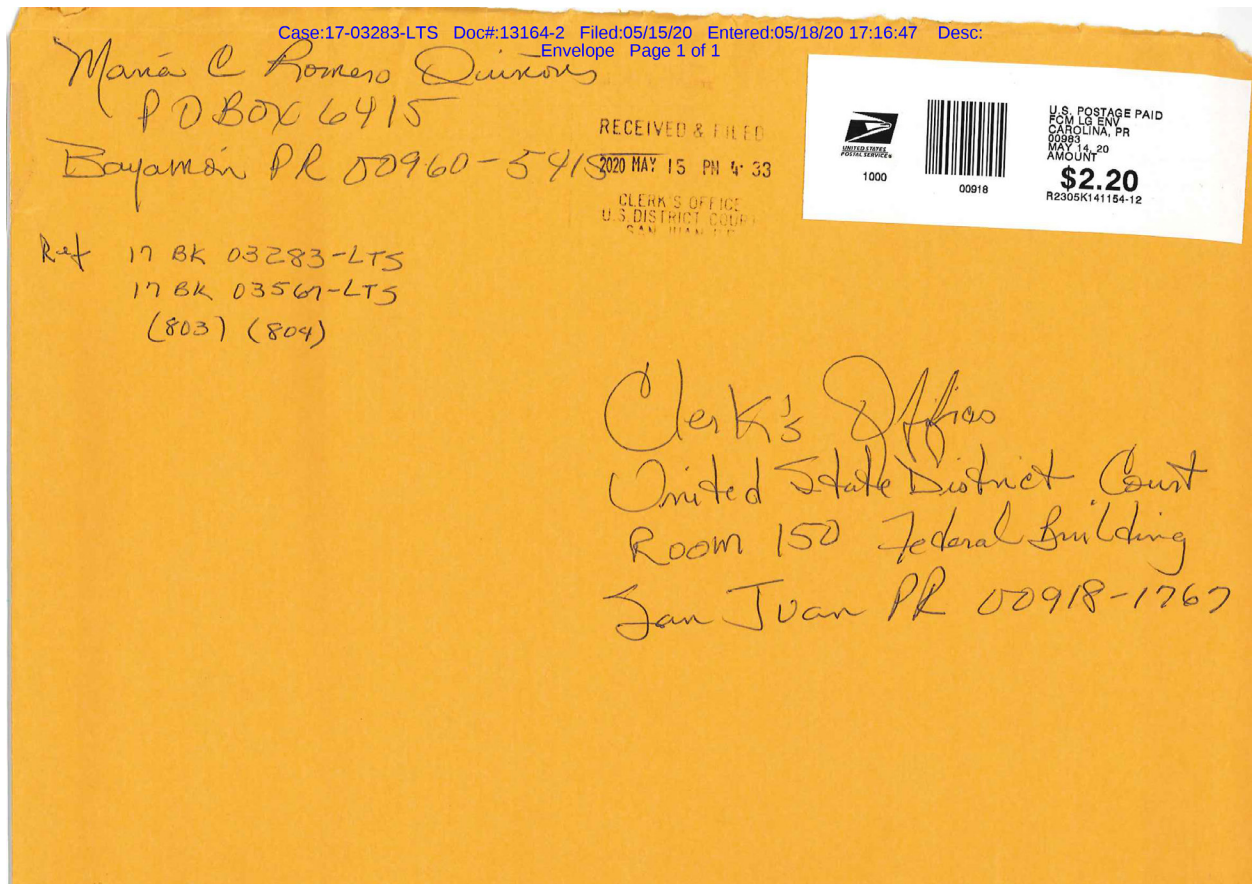 Case:17-03283-LTS Doc#:13164-2 Filed:05/15/20 Entered:05/18/20 17:16:47 Desc:
Envelope Page 1 of 1
María C Romero Quiñones
P O BOX 6415
Bayamón PR 00960-5415
RECEIVED & FILED
2020 MAY 15 PM 4:33
CLERK'S OFFICE
U.S. DISTRICT COURT
SAN JUAN P.R.
UNITED STATES
POSTAL SERVICE®
1000
00918
U.S. POSTAGE PAID
FCM LG ENV
CAROLINA, PR
00983
MAY 14, 20
AMOUNT
$2.20
R2305K141154-12
Ref 17 BK 03283-LTS
17 BK 03567-LTS
(803) (804)
Clerk's Office
United State District Court
Room 150 Federal Building
San Juan PR 00918-1767